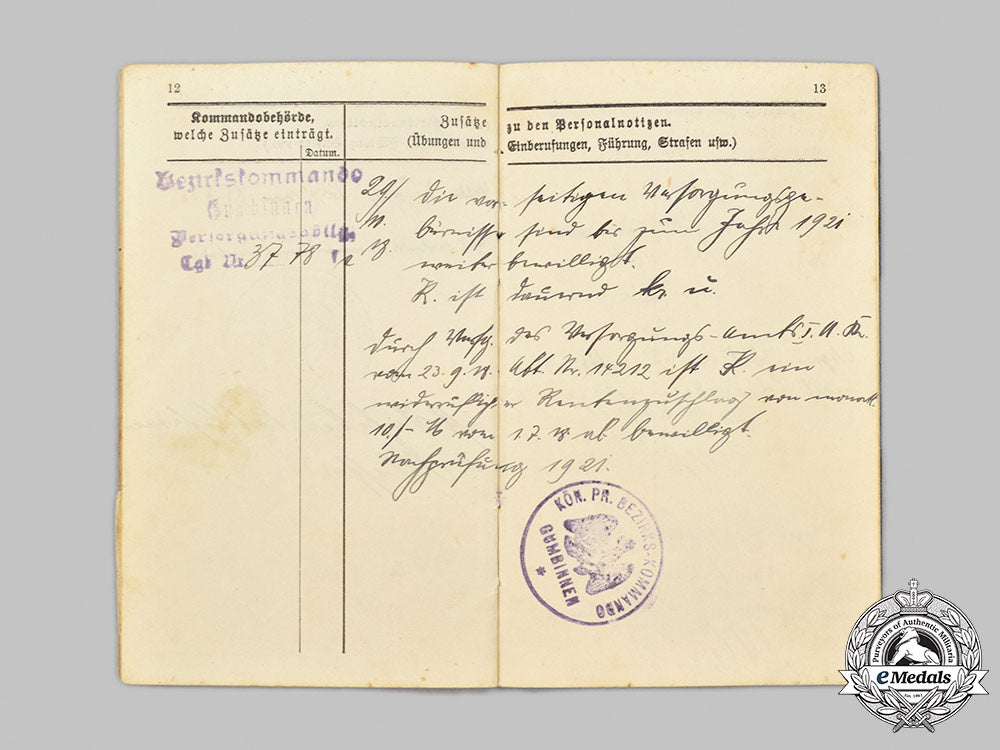 12
13
Kommandobehörde,
welche Zusätze einträgt.
Datum.
Zusätze zu den Personalnotizen.
(Übungen und Einberufungen, Führung, Strafen usw.)
Bezirkskommando
Gumbinnen
Tgb Nr. 3778
29/
11.
18.
die vorseitigen Versorgungsge-
bürnisse sind bis zum Jahre 1921
weiter bewilligt.
K. ist dauernd kr. u.
Durch Verfg. des Versorgungs-Amts I. A. K.
vom 23.9.18. Abt. Nr. 14212 ist K. ein
widerruflicher Rentenzuschlag von monatl.
10,- M vom 1.7.18 ab bewilligt.
Nachprüfung 1921.
KÖN. PR. BEZIRKS-KOMMANDO
GUMBINNEN
*
Purveyors of Authentic Militaria
eMedals